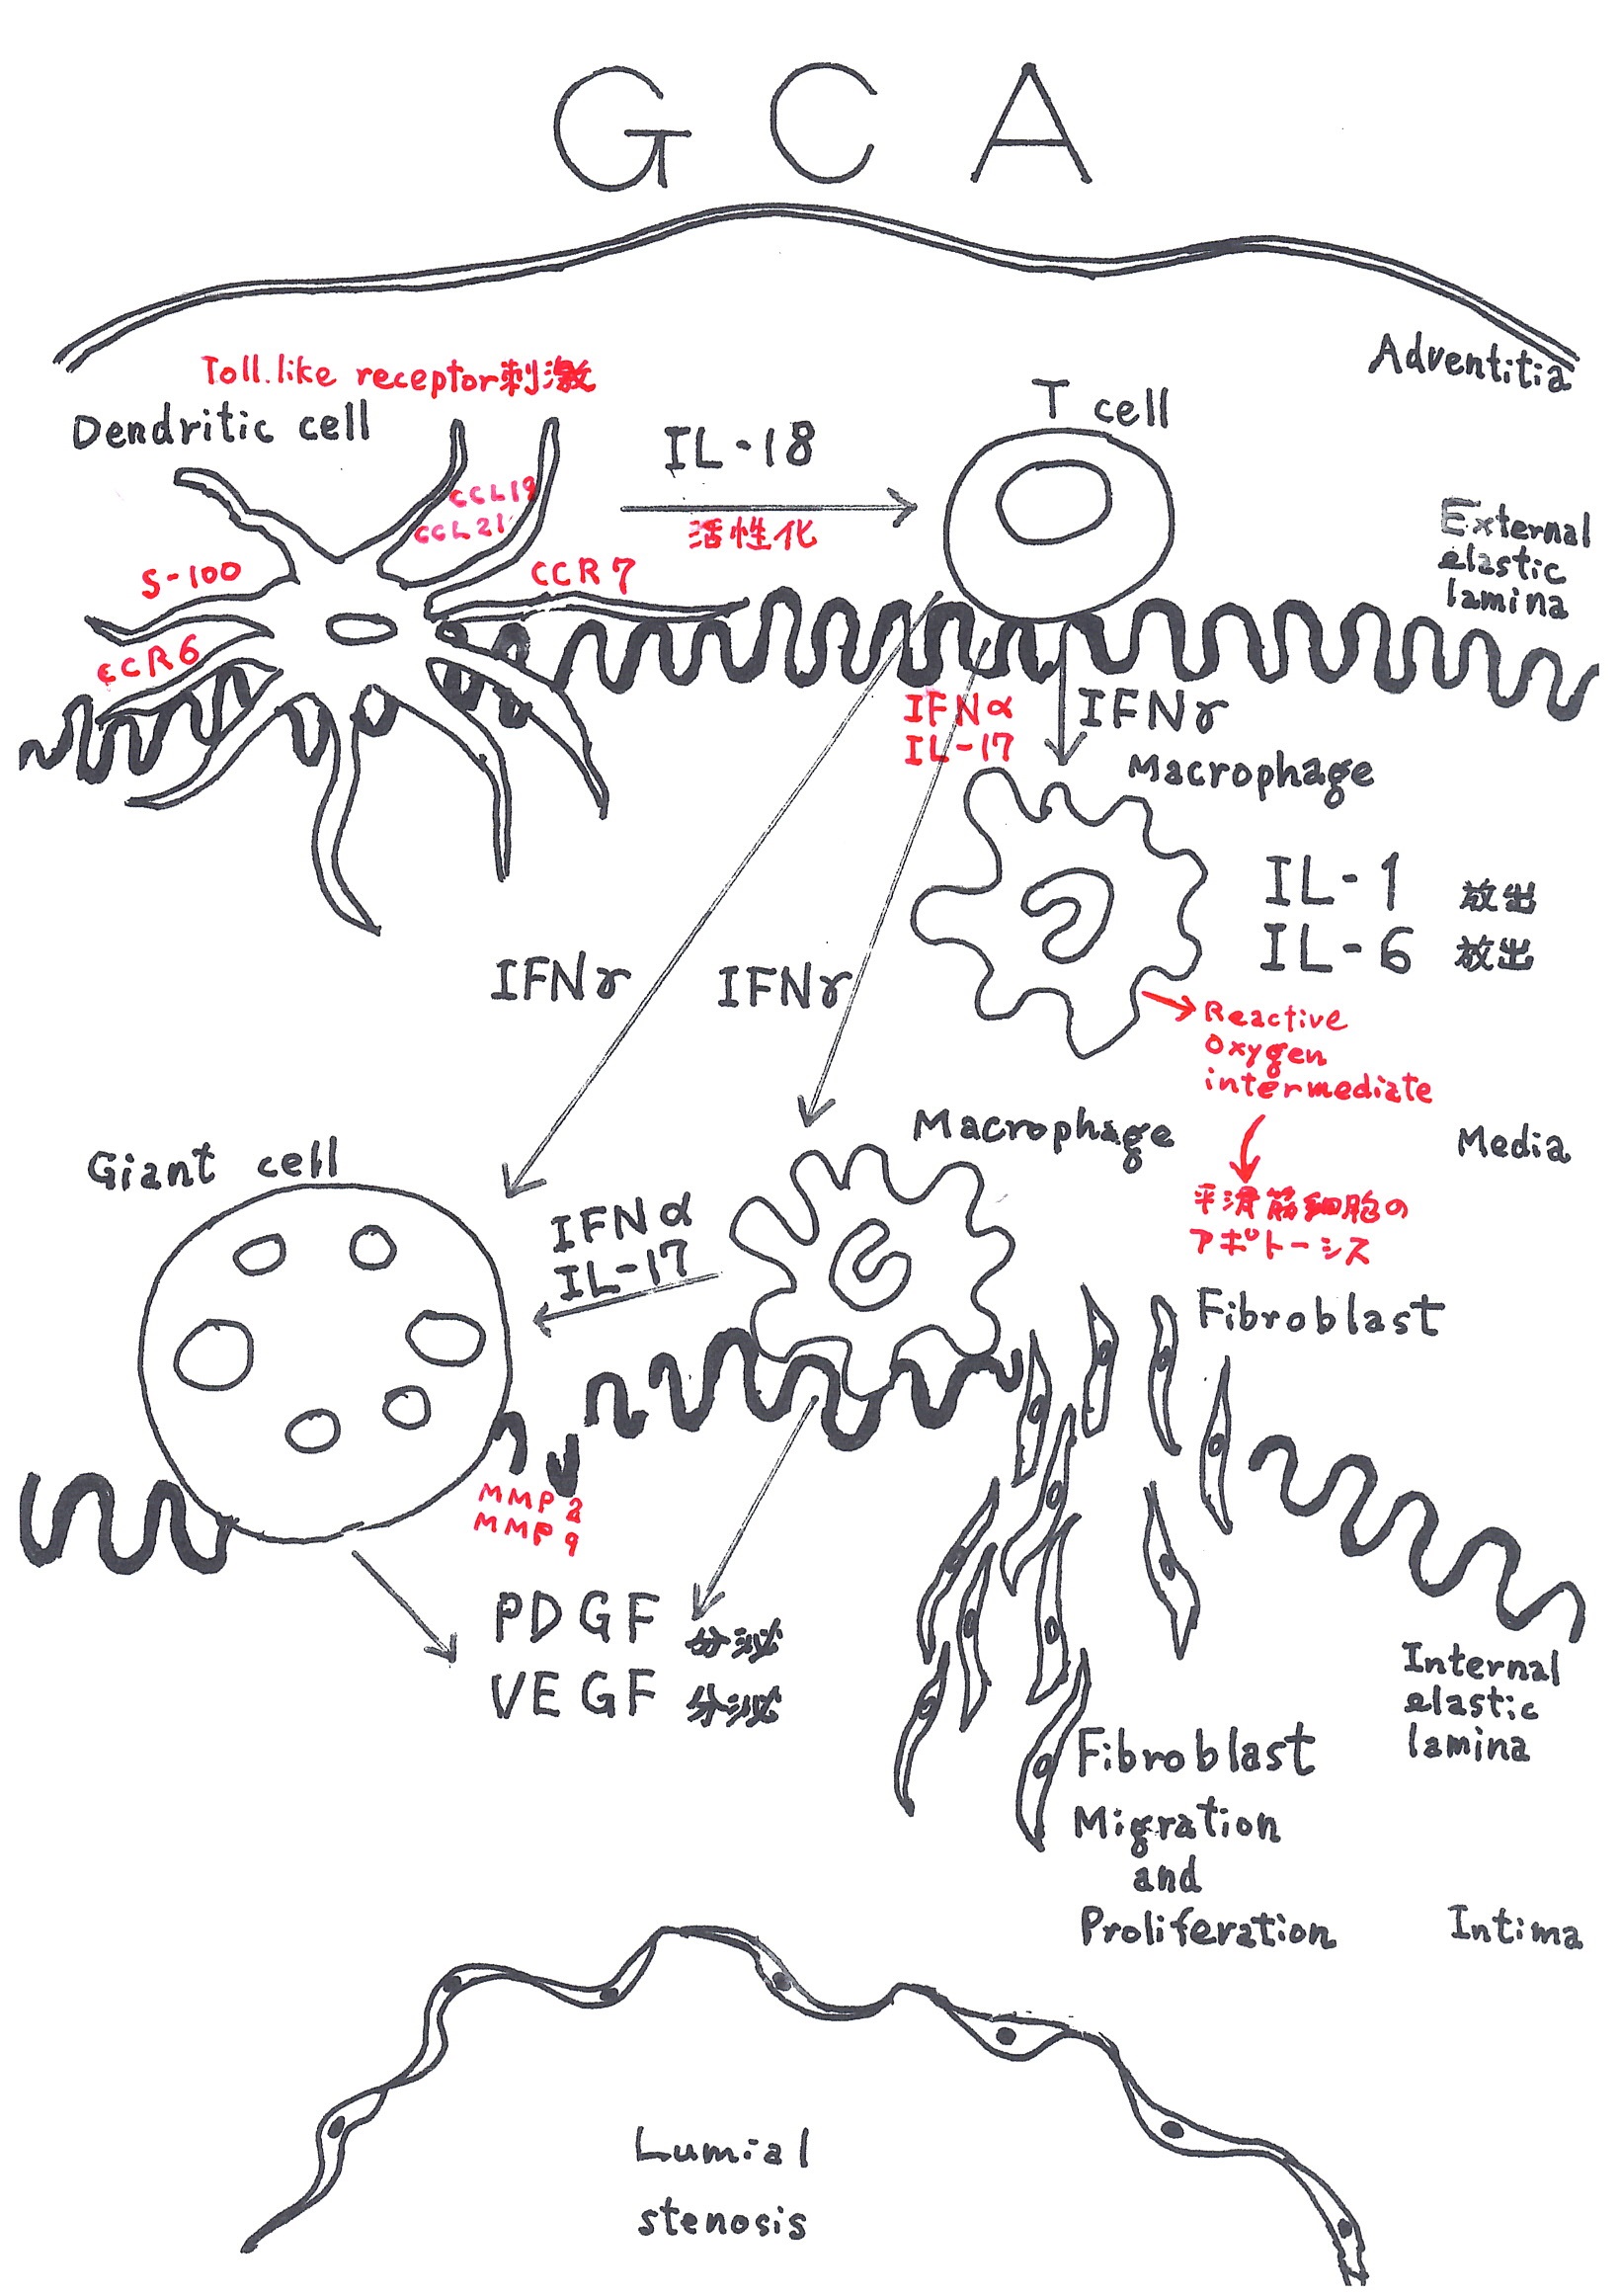 GCA
Adventitia
Toll.like receptor刺激
Dendritic cell
T cell
IL-18
活性化
CCL19
CCL21
External
elastic
lamina
S-100
CCR7
CCR6
IFNα
IL-17
IFNγ
Macrophage
IL-1 放出
IL-6 放出
IFNγ
IFNγ
Reactive
Oxygen
intermediate
Macrophage
Media
Giant cell
平滑筋細胞の
アポトーシス
IFNα
IL-17
Fibroblast
MMP2
MMP9
PDGF 分泌
VEGF 分泌
Internal
elastic
lamina
Fibroblast
Migration
and
Proliferation
Intima
Lumial
stenosis